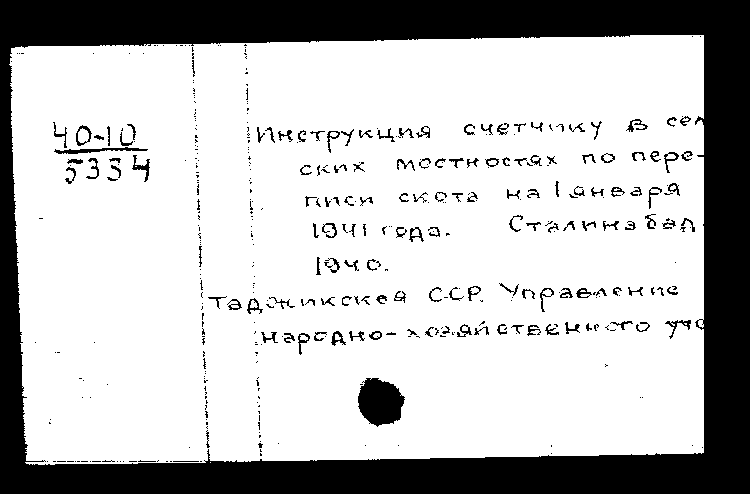 40-10
5334
Инструкция счетчику в сел
ских местностях по пере-
писи скота на 1 января
1941 года. Сталинабад
1940.
Таджикская ССР. Управление
народно-хозяйственного уче